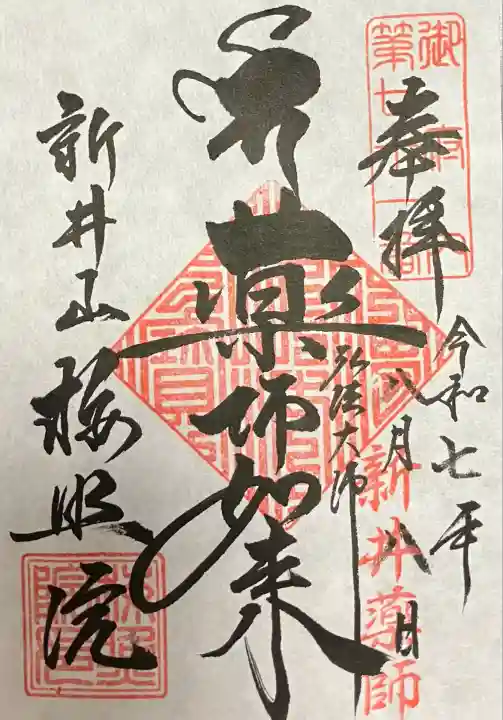 御府内
第七十一番
奉拝
令和七年
八月八日
新井薬師
薬師如来
弘法大師
新井山梅照院